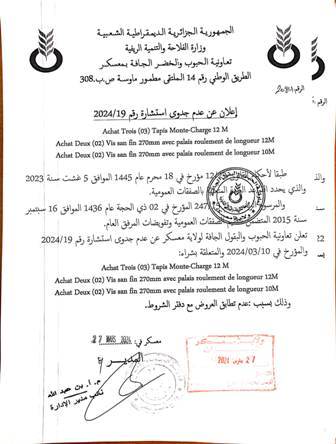 الجمهورية الجزائرية الديمقراطية الشعبية
وزارة الفلاحة والتنمية الريفية
تعاونية الحبوب والخضر الجافة بمعسكر
الطريق الوطني رقم 14 الملتقى مطمور ماوسة ص.ب.308
إعلان عن عدم جدوى استشارة رقم 2024/19
Achat Trois (03) Tapis Monte-Charge 12 M
Achat Deux (02) Vis san fin 270mm avec palais roulement de longueur 12M
Achat Deux (02) Vis san fin 270mm avec palais roulement de longueur 10M
طبقا لأحكام 12 مؤرخ في 18 محرم عام 1445 الموافق 5 غشت سنة 2023
والذي يحدد القواعد العامة المتعلقة بالصفقات العمومية.
والمرسوم 247 المؤرخ في 02 ذي الحجة عام 1436 الموافق 16 سبتمبر
سنة 2015 المتضمن تنظيم الصفقات العمومية وتفويضات المرفق العام.
تعلن تعاونية الحبوب والبقول الجافة لولاية معسكر عن عدم جدوى استشارة رقم 2024/19
والمؤرخ في 2024/03/10 والمتعلقة بشراء:
Achat Trois (03) Tapis Monte-Charge 12 M
Achat Deux (02) Vis san fin 270mm avec palais roulement de longueur 12M
Achat Deux (02) Vis san fin 270mm avec palais roulement de longueur 10M
وذلك بسبب :عدم تطابق العروض مع دفتر الشروط.
معسكر في: 27 MARS 2024
المدير
27 مارس 2024
م.ا. بن عبد الله
مكتب مدير الإدارة